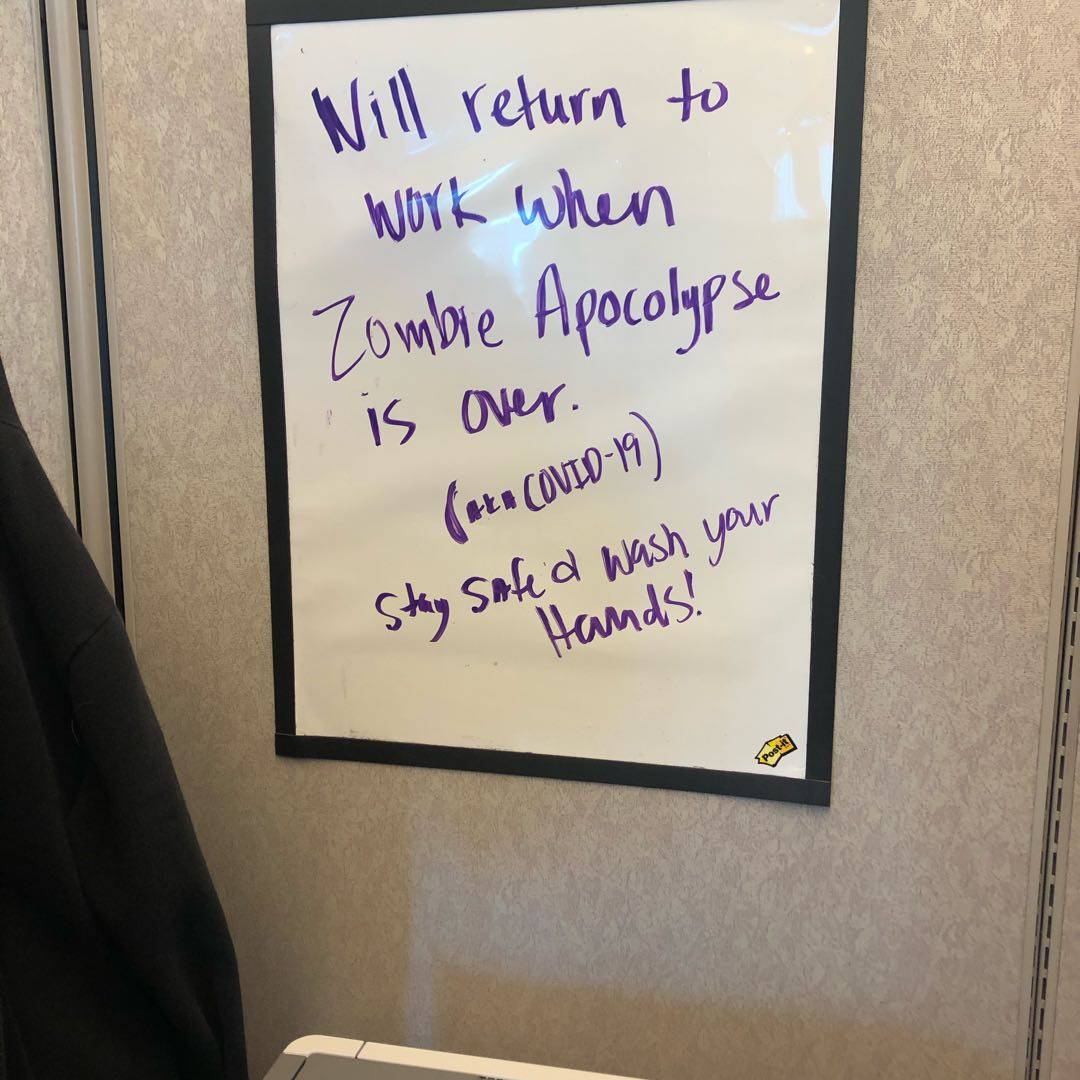 Will return to
work when
Zombie Apocolypse
is over.
(AKA COVID-19)
Stay safe & wash your
Hands!
Post-it